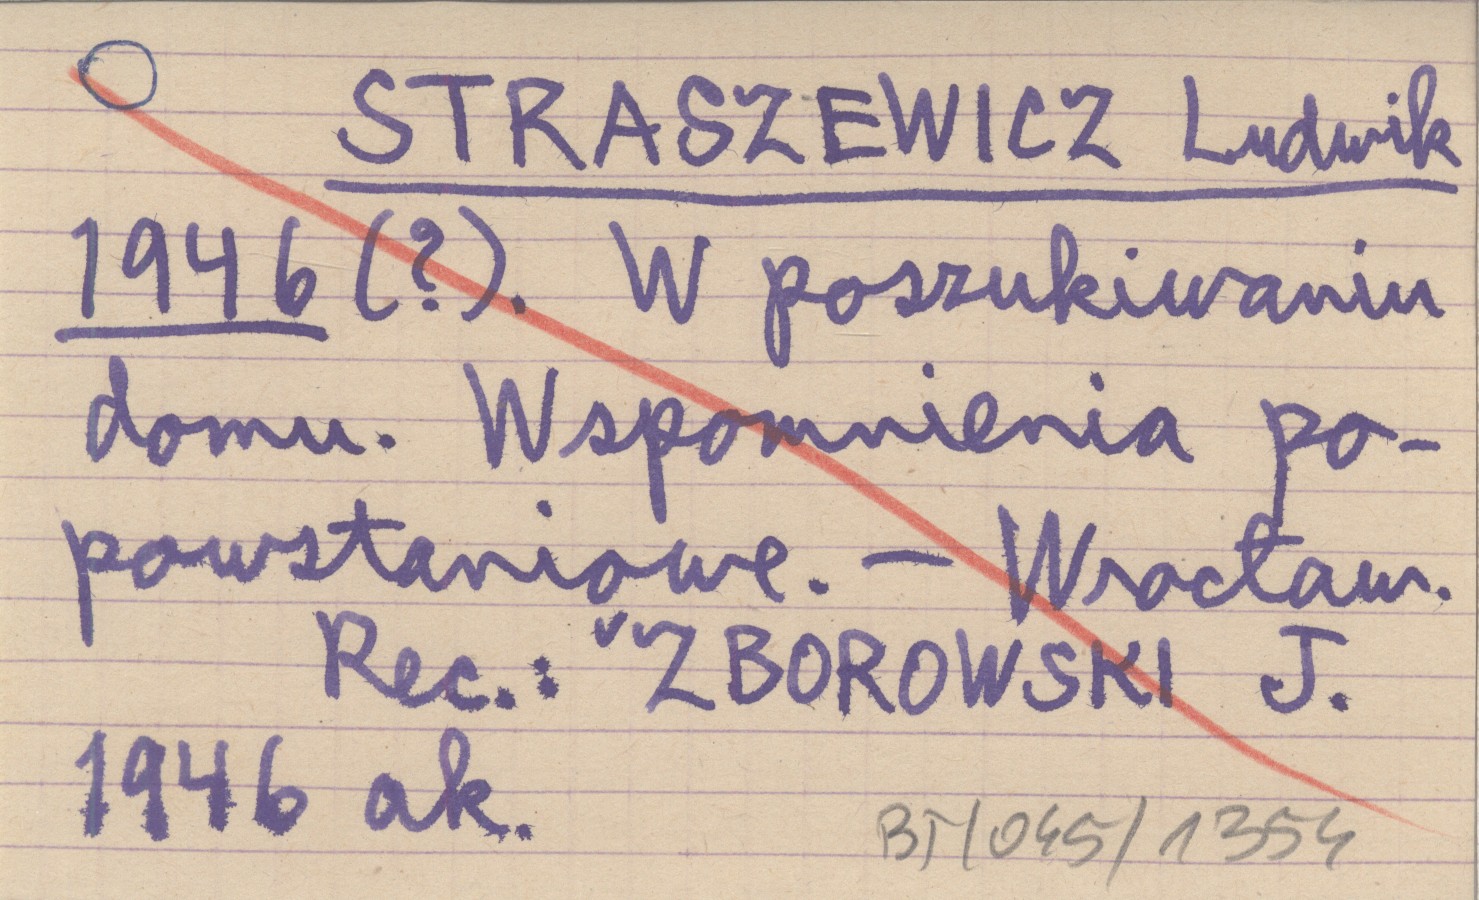 STRASZEWICZ Ludwik
1946 (?). W poszukiwaniu
domu. Wspomnienia po-
powstaniowe. — Wrocław.
Rec.: "ZBOROWSKI J.
1946 ak.
BT/045/1354